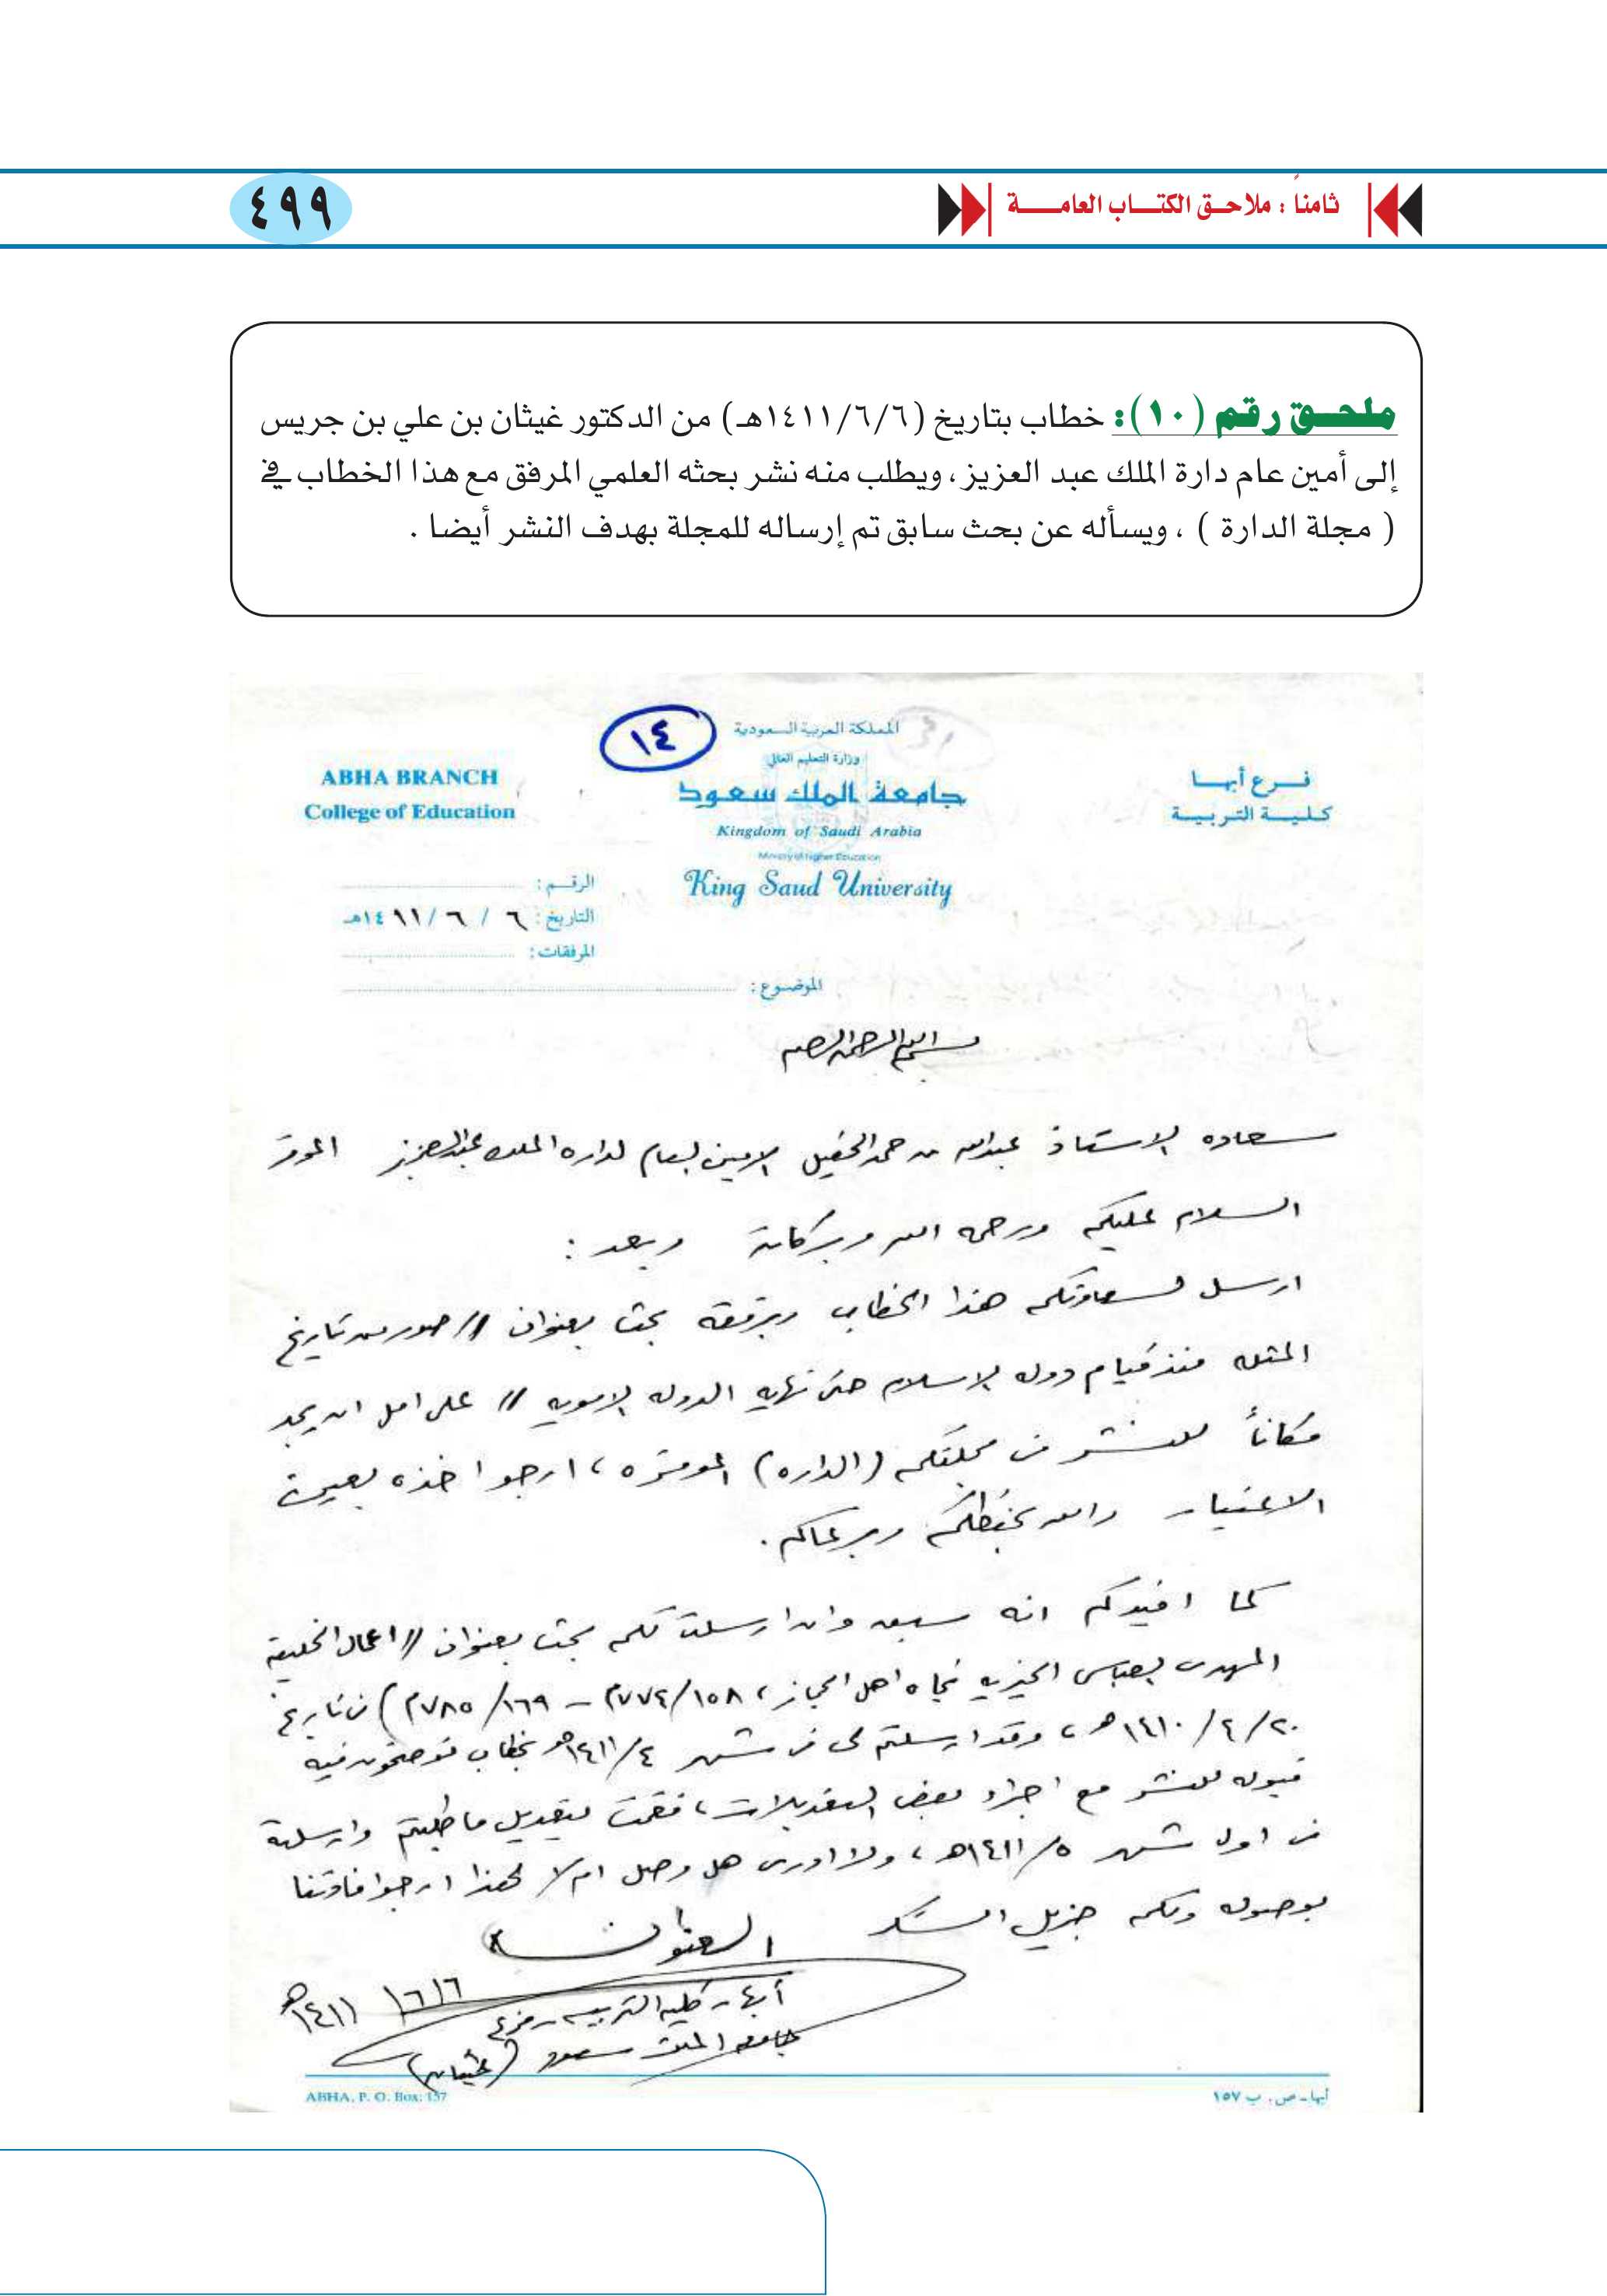 ثامناً : ملاحـق الكتـــاب العامـــــة
٤٩٩
ملحـــق رقم (١٠): خطاب بتاريخ (١٤١١/٦/٦هـ) من الدكتور غيثان بن علي بن جريس
إلى أمين عام دارة الملك عبد العزيز، ويطلب منه نشر بحثه العلمي المرفق مع هذا الخطاب في
( مجلة الدارة ) ، ويسأله عن بحث سابق تم إرساله للمجلة بهدف النشر أيضا .
١٤
المملكة العربية السعودية
وزارة التعليم العالي
جامعة الملك سعود
Kingdom of Saudi Arabia
Ministry of Higher Education
King Saud University
فـــرع أبهـــا
كـلـيـــة التـربـيـــة
ABHA BRANCH
College of Education
الرقـــم :
التاريخ : ٦ / ٦ / ١٤١١هـ
المرفقات :
الموضـوع :
بسم الله الرحمن الرحيم
سعاده الاستاذ عبدالله بن حمد الحقيل الامين العام لداره الملك عبدالعزيز الموقر
السلام عليكم ورحمه الله وبركاته وبعد :
ارسل لسعادتكم هذا الخطاب وبرفقه بحث بعنوان // صور من تاريخ
المثله منذ قيام دوله الاسلام حتى نهايه الدوله الامويه // على امل ان يجد
مكاناً للنشر في مجلتكم (الداره) الموقره ، ارجو اخذه بعين
الاعتبار والله يحفظكم ويرعاكم .
كما افيدكم انه سبق وان ارسلت لكم بحث بعنوان // اعمال الخليفة
المهدى العباسى الخيريه تجاه اهل الحجاز ، ١٥٨/٧٧٤م – ١٦٩/٧٨٥م) في تاريخ
٢٠/٤/١٤١٠هـ ، وقد ارسلتم لى في شهر ٤/١٤١١هـ بخطاب توضحون فيه
قبوله للنشر مع اجراء بعض التعديلات ، فقمت بتعديل ما طلبتم وارسلته
في اول شهر ٥/١٤١١هـ ، ولا ادرى هل وصل ام لا لهذا ارجو افادتنا
بوصوله ولكم جزيل الشكر
العنوان
أبها - كليه التربيه - فرع
جامعه الملك سعود (غيثان)
٦/٦/١٤١١هـ
ABHA, P. O. Box: 157
أبها - ص . ب ١٥٧